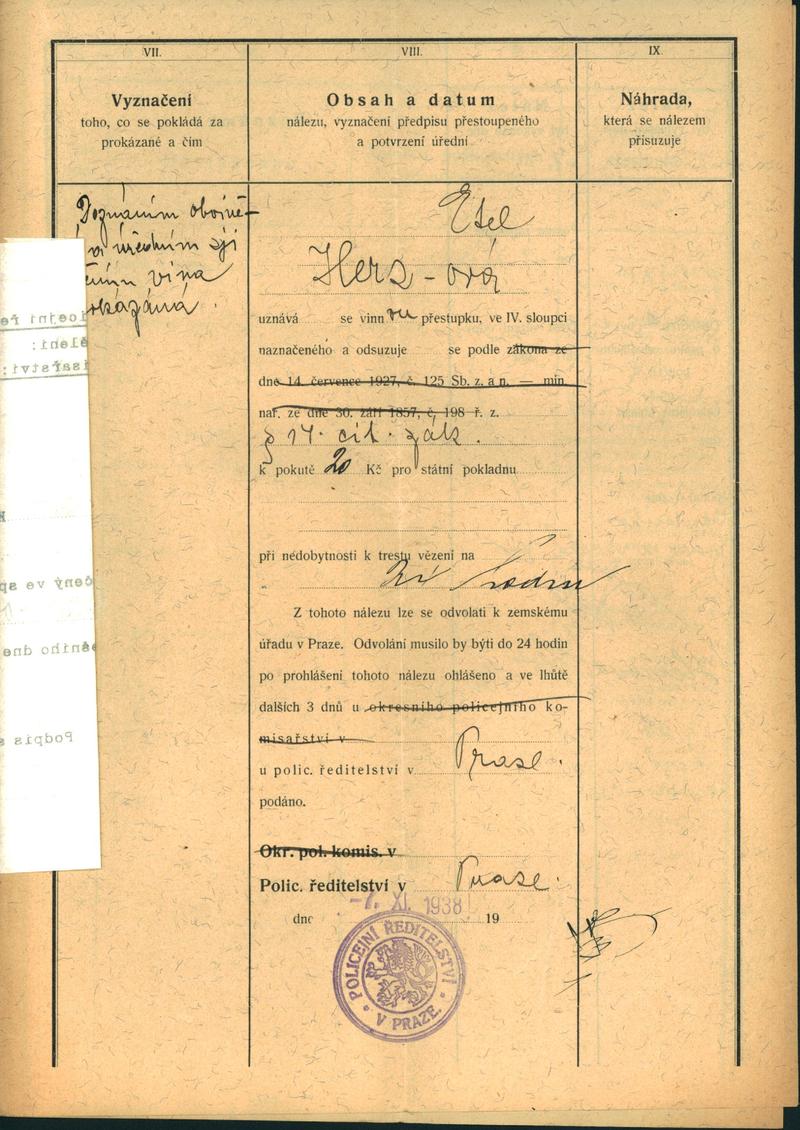 VII.
Vyznačení
toho, co se pokládá za
prokázané a čím
Doznáním obvině-
úředním zji
vina
okázána.
VIII.
Obsah a datum
nálezu, vyznačení předpisu přestoupeného
a potvrzení úřední
Etel
Herz-ová
uznává se vinnou přestupku, ve IV. sloupci
naznačeného a odsuzuje se podle zákona ze
dne 14. července 1927, č. 125 Sb. z. a n. — min.
nař. ze dne 30. září 1857, č. 198 ř. z.
§ 14. cit. zák.
k pokutě 20 Kč pro státní pokladnu
při nedobytnosti k trestu vězení na
Z tohoto nálezu lze se odvolati k zemskému
úřadu v Praze. Odvolání musilo by býti do 24 hodin
po prohlášení tohoto nálezu ohlášeno a ve lhůtě
dalších 3 dnů u okresního policejního ko-
misařství v
u polic. ředitelství v Praze.
podáno.
Okr. pol. komis. v
Polic. ředitelství v Praze.
-7. XI. 1938
dne 19
POLICEJNÍ ŘEDITELSTVÍ
V PRAZE.
IX.
Náhrada,
která se nálezem
přisuzuje
Podpis